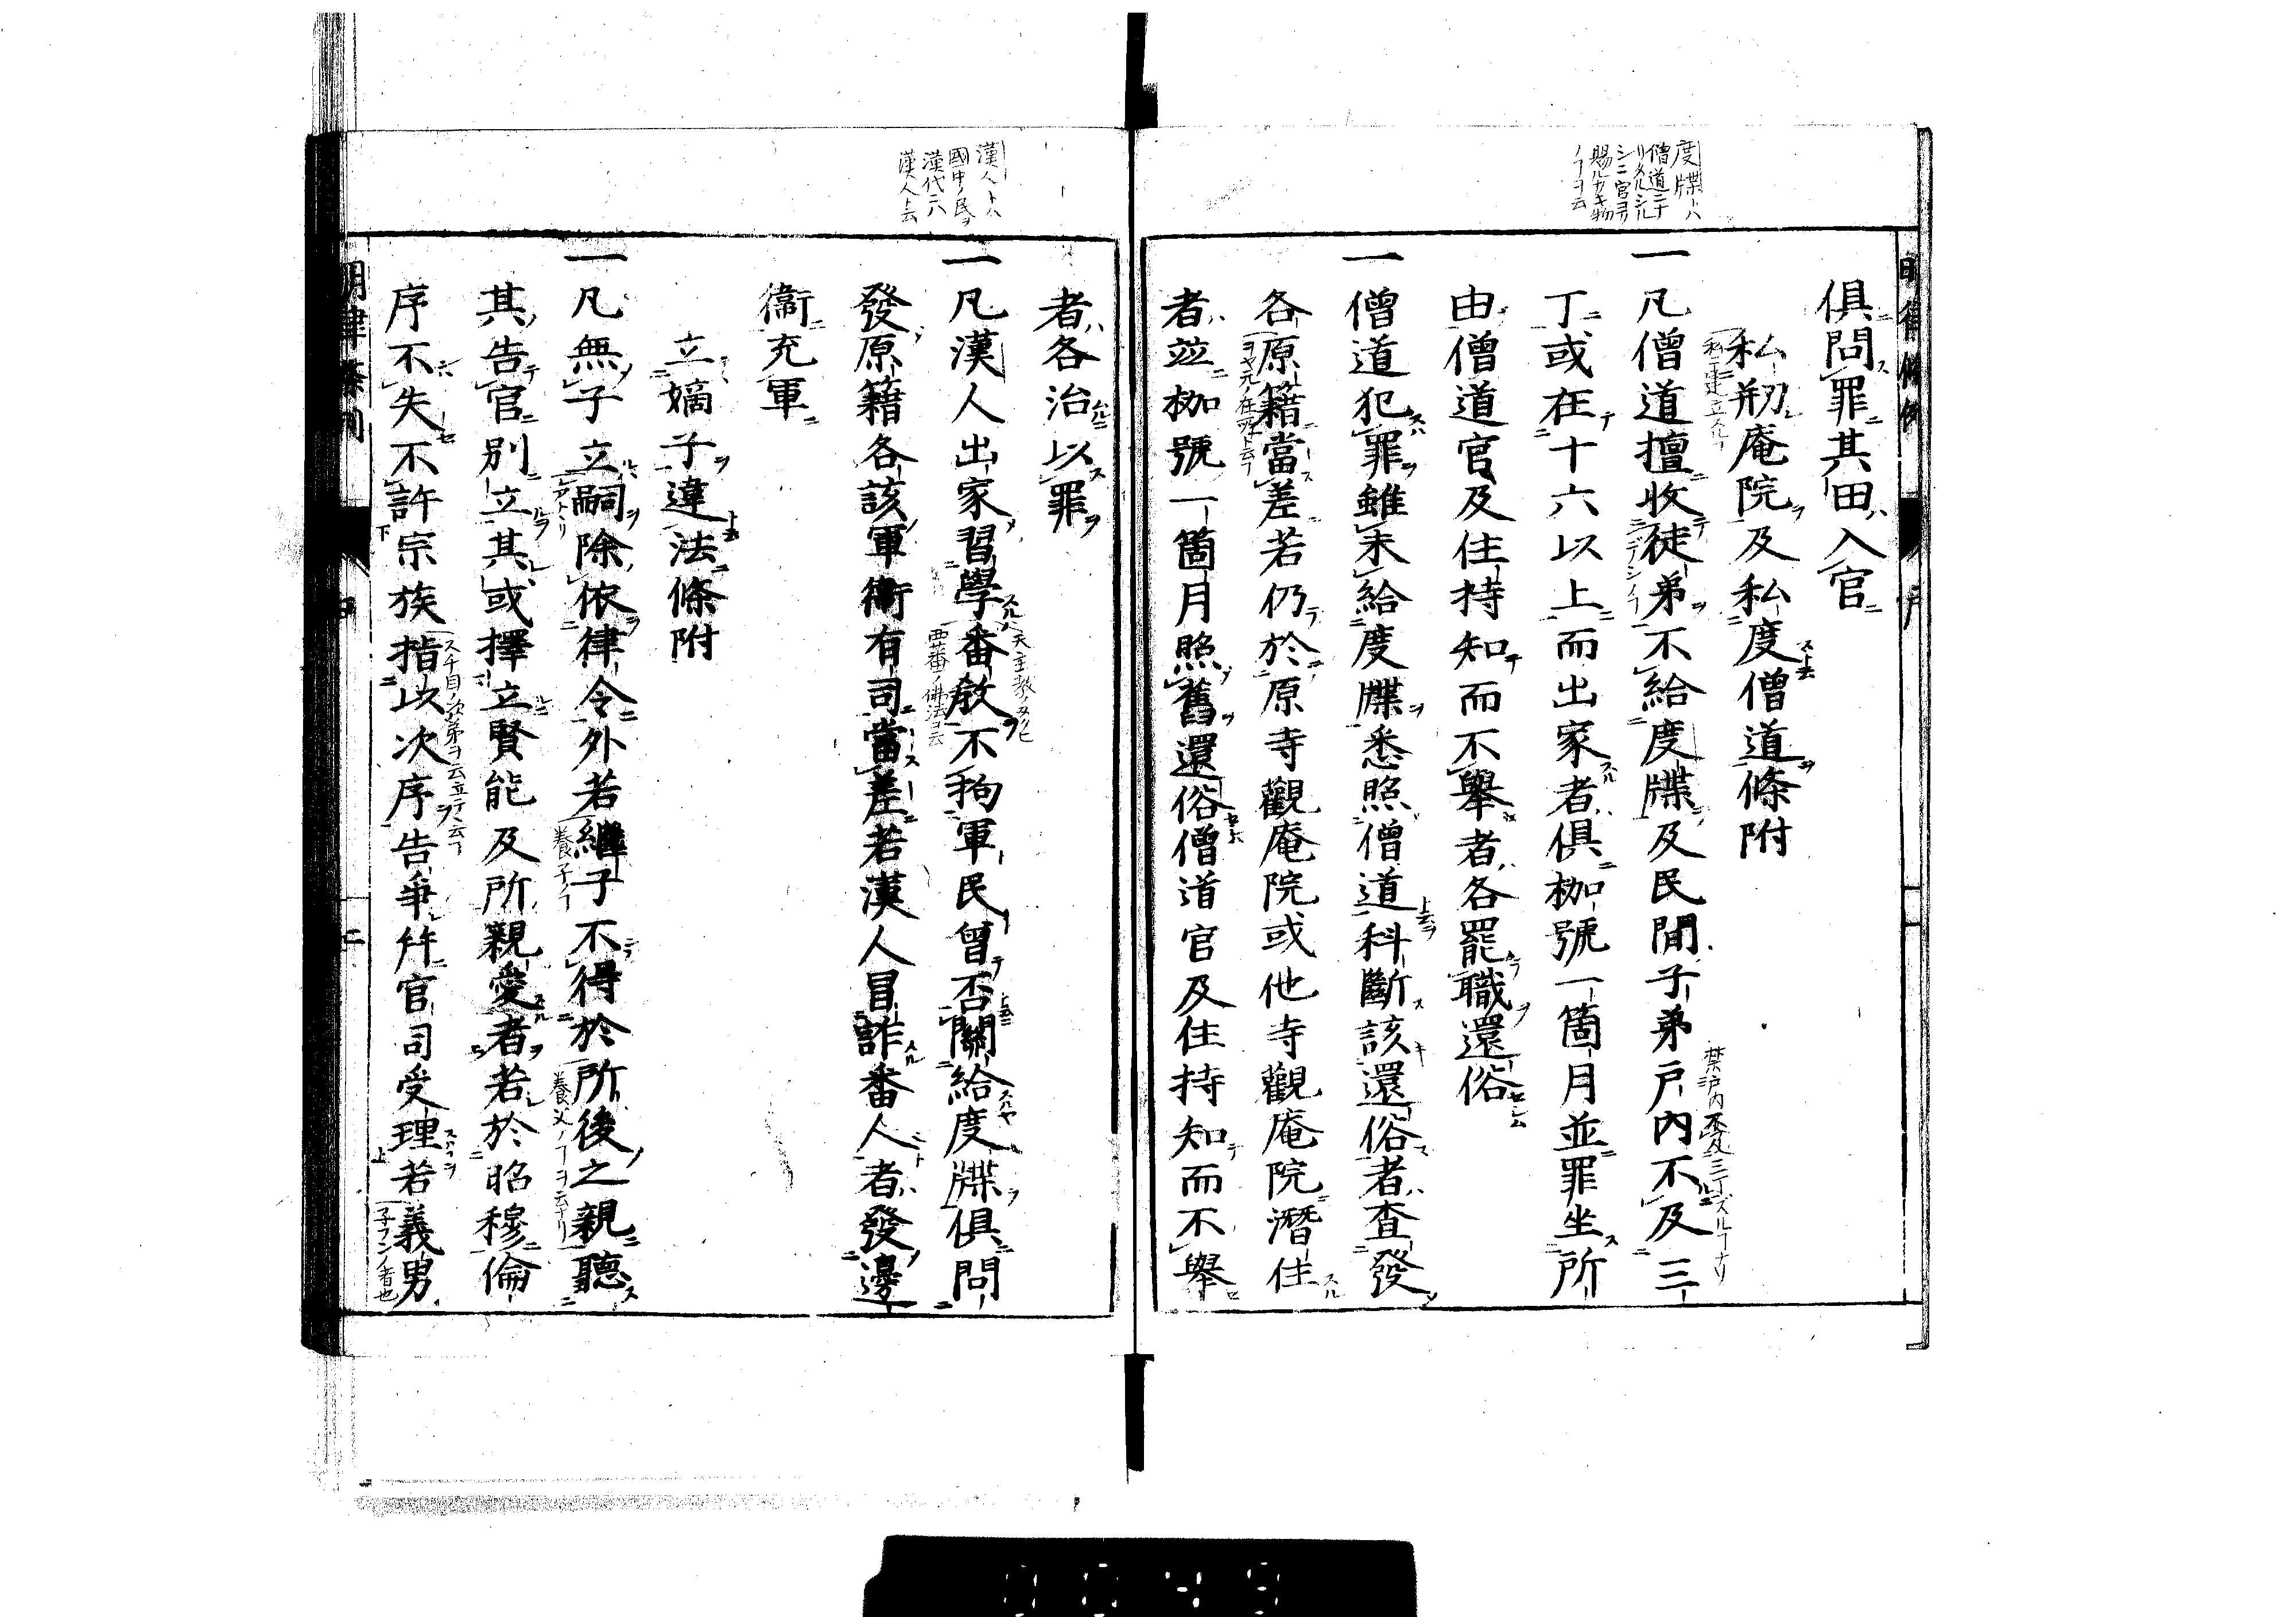 度牒トハ
僧道ニナ
リタルシル
シニ官ヨリ
賜ルカキ物
ノヿヲ云
俱問罪其田入官
私剏庵院及私度僧道條附
一凡僧道擅收徒弟不給度牒及民間子弟戸內不及三
丁或在十六以上而出家者俱枷號一箇月並罪坐所
由僧道官及住持知而不舉者各罷職還俗
一僧道犯罪雖未給度牒悉照僧道科斷該還俗者查發
各原籍當差若仍於原寺觀庵院或他寺觀庵院潛住
者並枷號一箇月照舊還俗僧道官及住持知而不舉
漢人トハ
國中ノ民ヲ
漢代ニハ
漢人ト云
者各治以罪
一凡漢人出家習學番敎不拘軍民曾否關給度牒俱問
發原籍各該軍衞有司當差若漢人冒詐番人者發邊
衞充軍
立嫡子違法條附
一凡無子立嗣除依律令外若繼子不得於所後之親聽
其告官別立其或擇立賢能及所親愛者若於昭穆倫
序不失不許宗族指以次序告爭幷官司受理若義男
明律條例
二